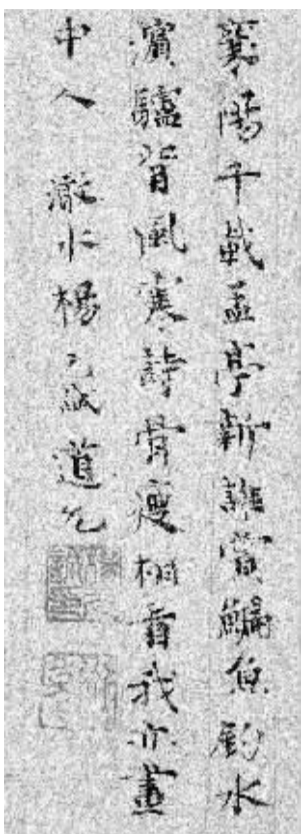 襄陽千載孟亭新誰賞鯿魚釣水
濱驢背風寒詩骨瘦相看我亦畫
中人 澉水楊元誠道孚